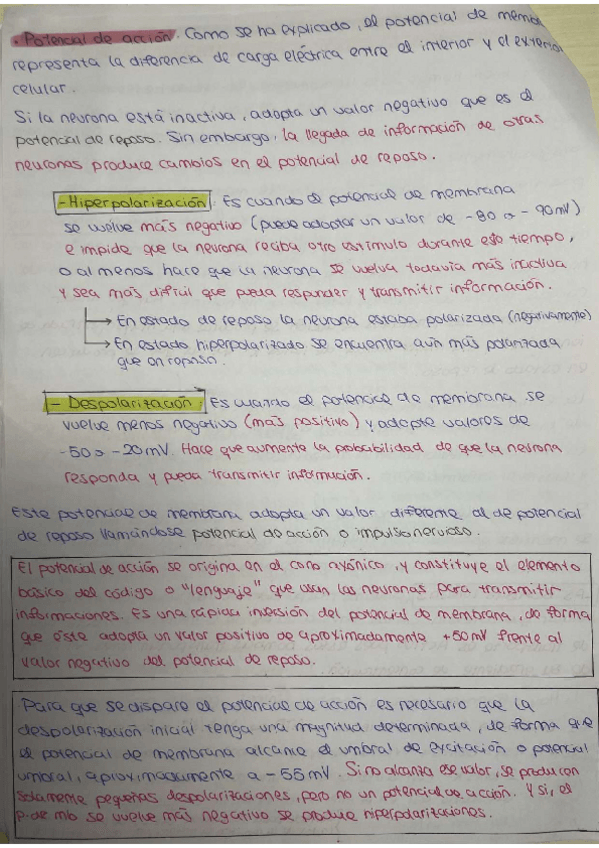 · Potencial de acción. Como se ha explicado, el potencial de memb
representa la diferencia de carga eléctrica entre el interior y el exterior
celular.
Si la neurona está inactiva, adopta un valor negativo que es el
potencial de reposo. Sin embargo, la llegada de información de otras
neuronas produce cambios en el potencial de reposo.
- Hiperpolarización. Es cuando el potencial de membrana
se vuelve más negativo (puede adoptar un valor de -80 o -90mV)
e impide que la neurona reciba otro estímulo durante ese tiempo,
o al menos hace que la neurona se vuelva todavía más inactiva
y sea más difícil que pueda responder y transmitir información.
→ En estado de reposo la neurona estaba polarizada (negativamente)
→ En estado hiperpolarizado se encuentra aún más polarizada
que en reposo.
- Despolarización. Es cuando el potencial de membrana se
vuelve menos negativo (más positivo) y adopta valores de
-50 o -20mV. Hace que aumente la probabilidad de que la neurona
responda y pueda transmitir información.
Este potencial de membrana adopta un valor diferente al de potencial
de reposo llamándose potencial de acción o impulso nervioso.
El potencial de acción se origina en el cono axónico, y constituye el elemento
básico del código o "lenguaje" que usan las neuronas para transmitir
informaciones. Es una rápida inversión del potencial de membrana, de forma
que éste adopta un valor positivo de aproximadamente +50mV frente al
valor negativo del potencial de reposo.
Para que se dispare el potencial de acción es necesario que la
despolarización inicial tenga una magnitud determinada, de forma que
el potencial de membrana alcance el umbral de excitación o potencial
umbral, aproximadamente a -55mV. Si no alcanza ese valor, se producen
solamente pequeñas despolarizaciones, pero no un potencial de acción. Y si, el
p. de mb se vuelve más negativo se produce hiperpolarizaciones.